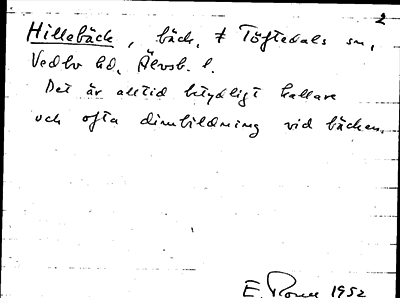 2
Hillebäck, bäck, Töftedals sn,
Vedbo hd, Älvsb. l.
Det är alltid betydligt kallare
och ofta dimbildning vid bäcken.
E. 1952